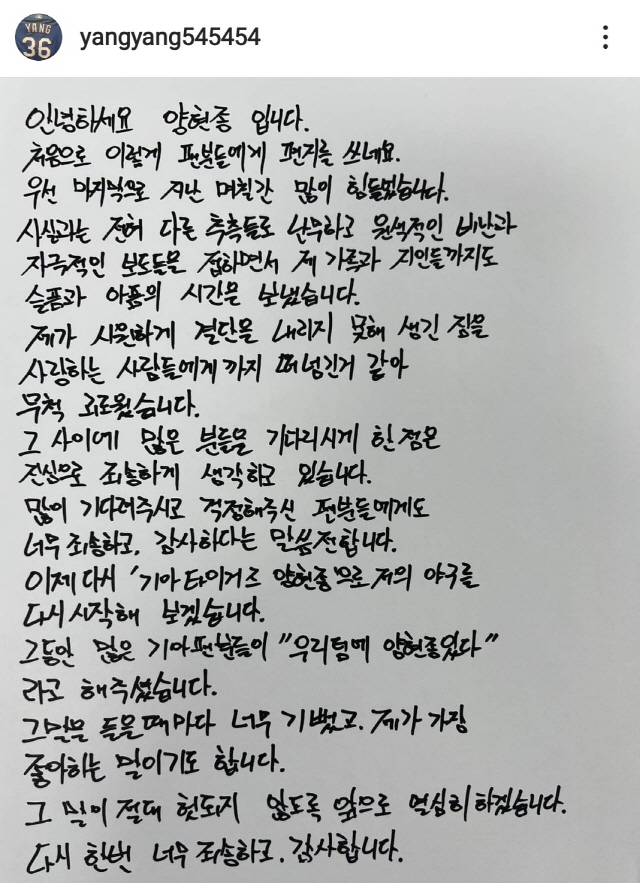 YANG
36
yangyang545454
안녕하세요 양현종 입니다.
처음으로 이렇게 팬분들에게 편지를 쓰네요.
우선 마지막으로 지난 며칠간 많이 힘들었습니다.
사실과는 전혀 다른 추측들로 난무하고 원색적인 비난과
자극적인 보도들을 접하면서 제 가족과 지인들까지도
슬픔과 아픔의 시간을 보냈습니다.
제가 시원하게 결단을 내리지 못해 생긴 짐을
사랑하는 사람들에게까지 떠넘긴거 같아
무척 괴로웠습니다.
그 사이에 많은 분들을 기다리시게 한점은
진심으로 죄송하게 생각하고 있습니다.
많이 기다려주시고 걱정해주신 팬분들에게도
너무 죄송하고, 감사하다는 말씀전합니다.
이제 다시 '기아타이거즈 양현종'으로 저의 야구를
다시 시작해 보겠습니다.
그동안 많은 기아팬분들이 "우리팀에 양현종있다"
라고 해주셨습니다.
그말을 들을때마다 너무 기뻤고, 제가 가장
좋아하는 말이기도 합니다.
그 말이 절대 헛되지 않도록 앞으로 열심히하겠습니다.
다시 한번 너무 죄송하고, 감사합니다.